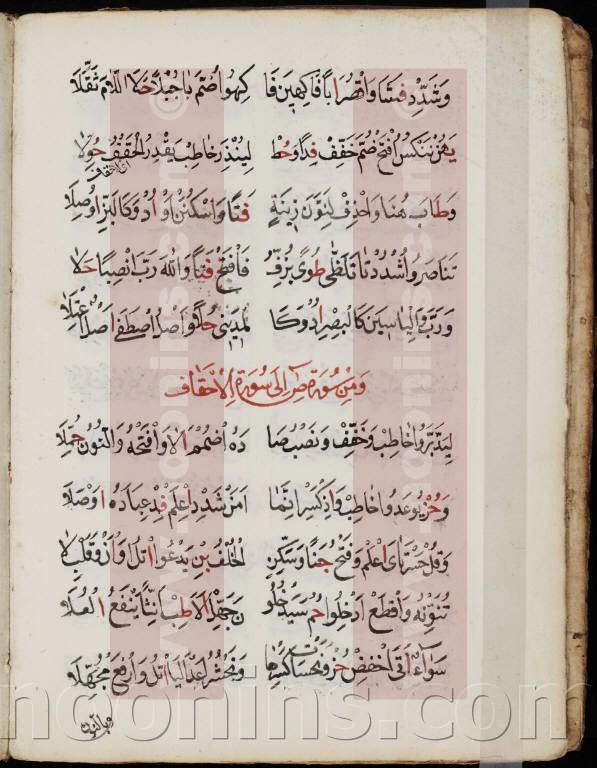 وَشَدِّدْ فشَا وَاقْصُرْ اَبًا فَاكِهِينَ فَا كِهُو اضْتُم بَا جُبُلًا حَلَا اللَّامُ ثَقَّلَا
يَهْز نَنْكُسُ افْتَحْ ضُمَّ خَفِّفْ فِدًا وَحُطْ لِيُنْذِرَ خَاطِبْ يَقْدِرُ الْحِقْفُ حُوِّلَا
وَطَابَ هُنَا وَاحْذِفْ لِتَنْوِينِ زِينَةٍ فَتًا وَاسْكُنْنَ اَوْ اُدْ وَكَالْبَزِّ اَوْصِلَا
تَنَاصَرُوا اشْدُدْ تَا تَلَظَّى طُوًى يَزِفُّ فَافْتَحْ فَتًا وَاللَّهَ رَبَّ انْصِبًا حَلَا
وَرَبَّ وَاِلْيَاسِينَ كَالْبَصْرِ اُدْ وَكَا لْمَدِينِي حُلًا وَصْلُ اصْطَفَا اَصْلُهُ اعْتَلَا
وَمِنْ سُورَةِ ص اِلَى سُورَةِ الْاَحْقَافِ
لِيَدَّبَّرُوا خَاطِبْ وَخَفِّفْ وَنَصْبُ صَا دِهِ اضْمُمْ اَلَا وَافْتَحْهُ وَالنُّونُ حُمِّلَا
وَحُزْ يُوعَدُوا خَاطِبْ وَاِذْ كَسْرُ انَّمَا اَمَنْ شَدِّدِ اعْلَمْ فِدْ عِبَادَهُ اَوْصَلَا
وَقُلْ حَسْرَتَايَ اعْلَمْ وَفَتْحُ جَنًا وَسَكِّنِ الْخُلْفُ بِنْ يَدْعُوا اتْلُ اَوْ اَنْ وَقَلْبِ لَا
تُنَوِّنْهُ وَاقْطَعْ اَدْخِلُوا حُمْ سَيَدْخُلُو نَ جَهِّلْ اَلَا طِبْ اَنِّثًا يَنْفَعُ الْعُلَا
سَوَآءٌ اَتَى اخْفِضْ حُزْ وَنَحْسَاتٍ كَسْرُ حَا وَنَحْشُرُ اَعْدَا الْيَا اتْلُ وَارْفَعْ مُجَهِّلَا
وبالنون
noonins.com